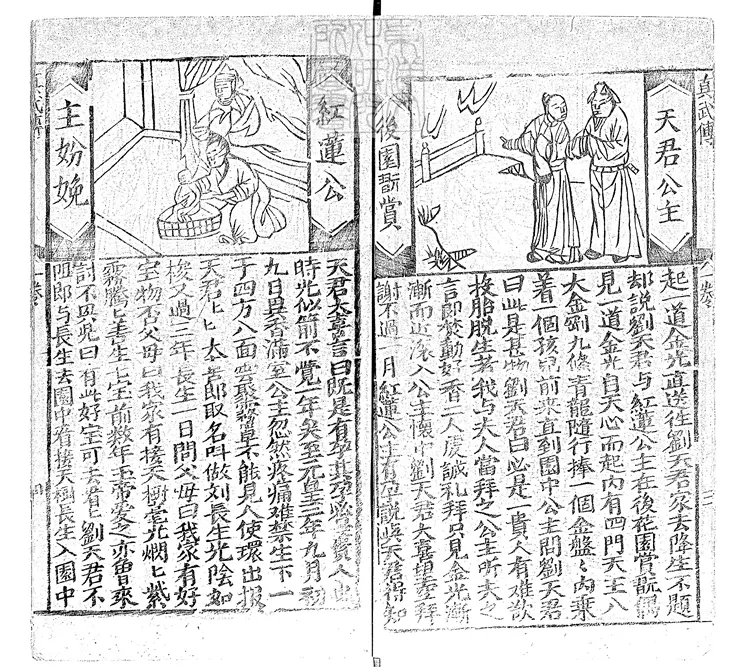 真武傳
天君公主
後園翫賞
起一道金光直送往劉天君家去降生不題
却説劉天君與紅蓮公主在後花園賞翫偶
見一道金光自天心而起内有四門天王八
大金剛九條青龍隨行捧一個金盤〻内乘
着一個孩兒前來直到園中公主問劉天君
曰此是甚物劉天君曰必是一貴人有难欲
投胎脱生者我与夫人當拜之公主聞夫之
言即焚動好香二人虔誠礼拜只見金光漸
漸而近滚入公主懷中劉天君大喜望空拜
謝不過一月紅蓮公主有孕説與天君得知
紅蓮公
主妢娩
天君大喜言曰既是有孕其孕必産貴人也
時光似箭不覺一年矣至元皇三年九月初
九日異香滿室公主忽然疼痛难禁生下一
于四方八面雲聚霧罩不能見人使環出報
天君〻〻大喜郎取名叫做刘長生光陰如
梭又過三年長生一日問父毋曰我家有好
宝物否父毋曰我家有接天樹毫光燗〻紫
霧騰〻善生七宝前数年玉帝爱之亦曾來
討不與兒曰有此好宝可去看〻劉天君不
阻郎与長生去園中看接天樹長生入園中